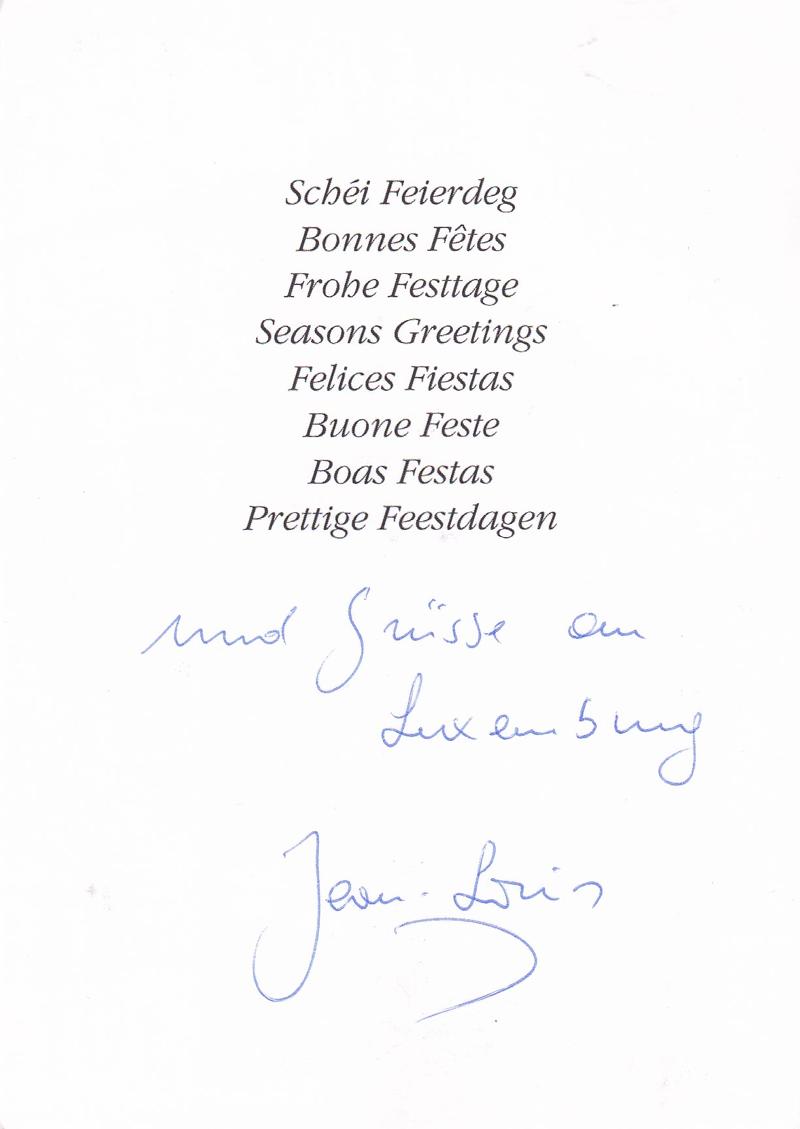 Schéi Feierdeg
Bonnes Fêtes
Frohe Festtage
Seasons Greetings
Felices Fiestas
Buone Feste
Boas Festas
Prettige Feestdagen
und Grüsse an
Luxemburg
Jean-Louis